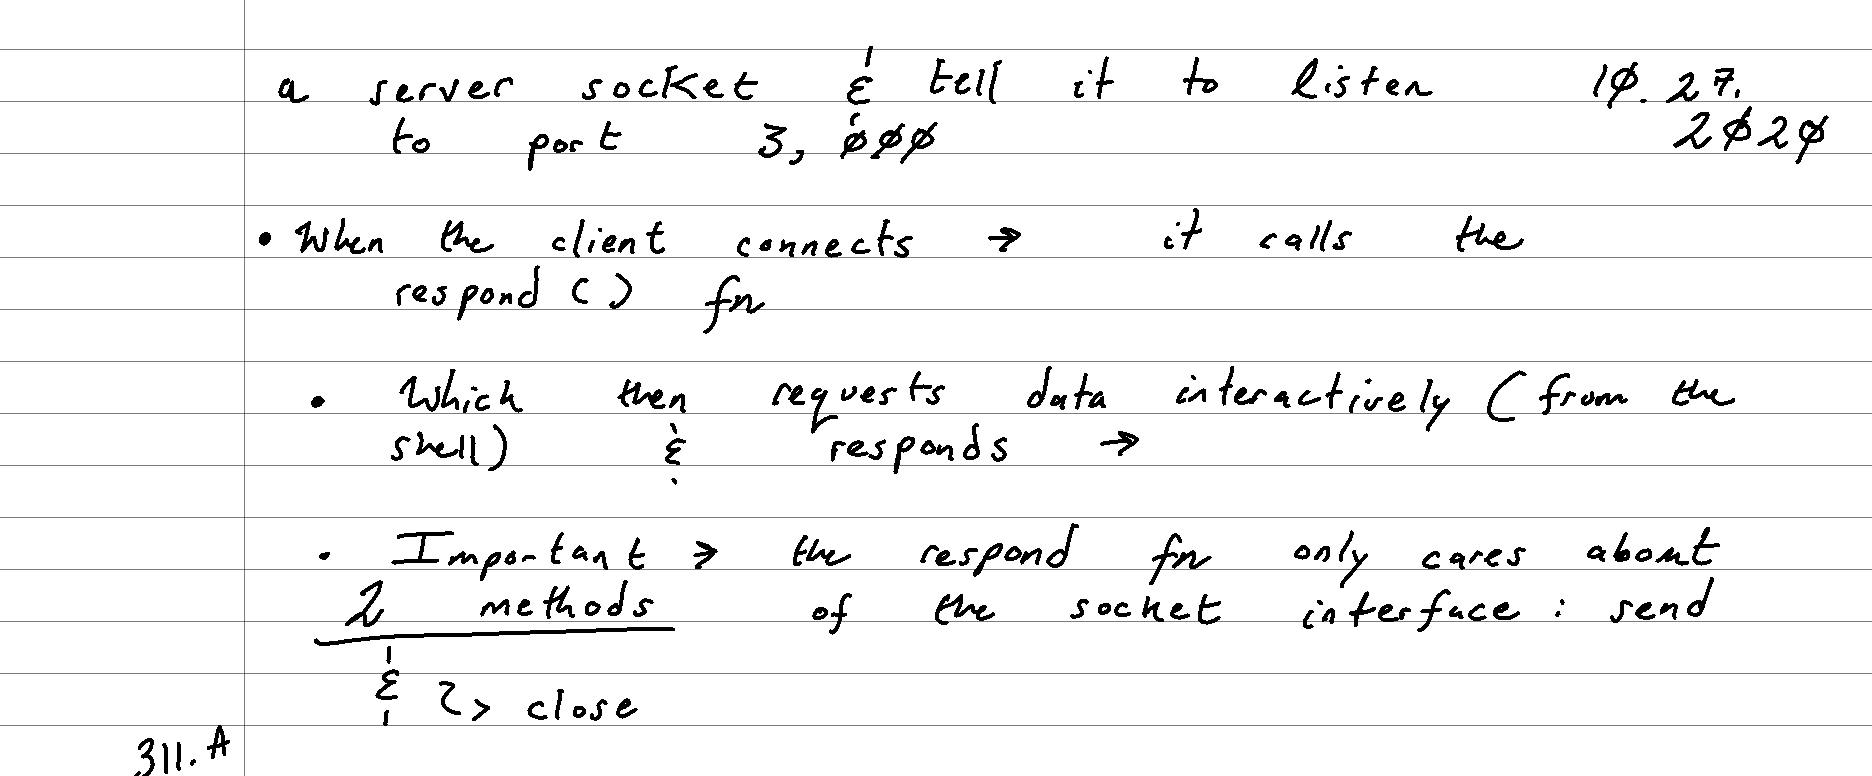 a server socket & tell it to listen 10.27.
to port 3,000 2020
• When the client connects → it calls the
respond () fn
• Which then requests data interactively (from the
shell) & responds →
• Important → the respond fn only cares about
2 methods of the socket interface : send
& ↳ close
311.A